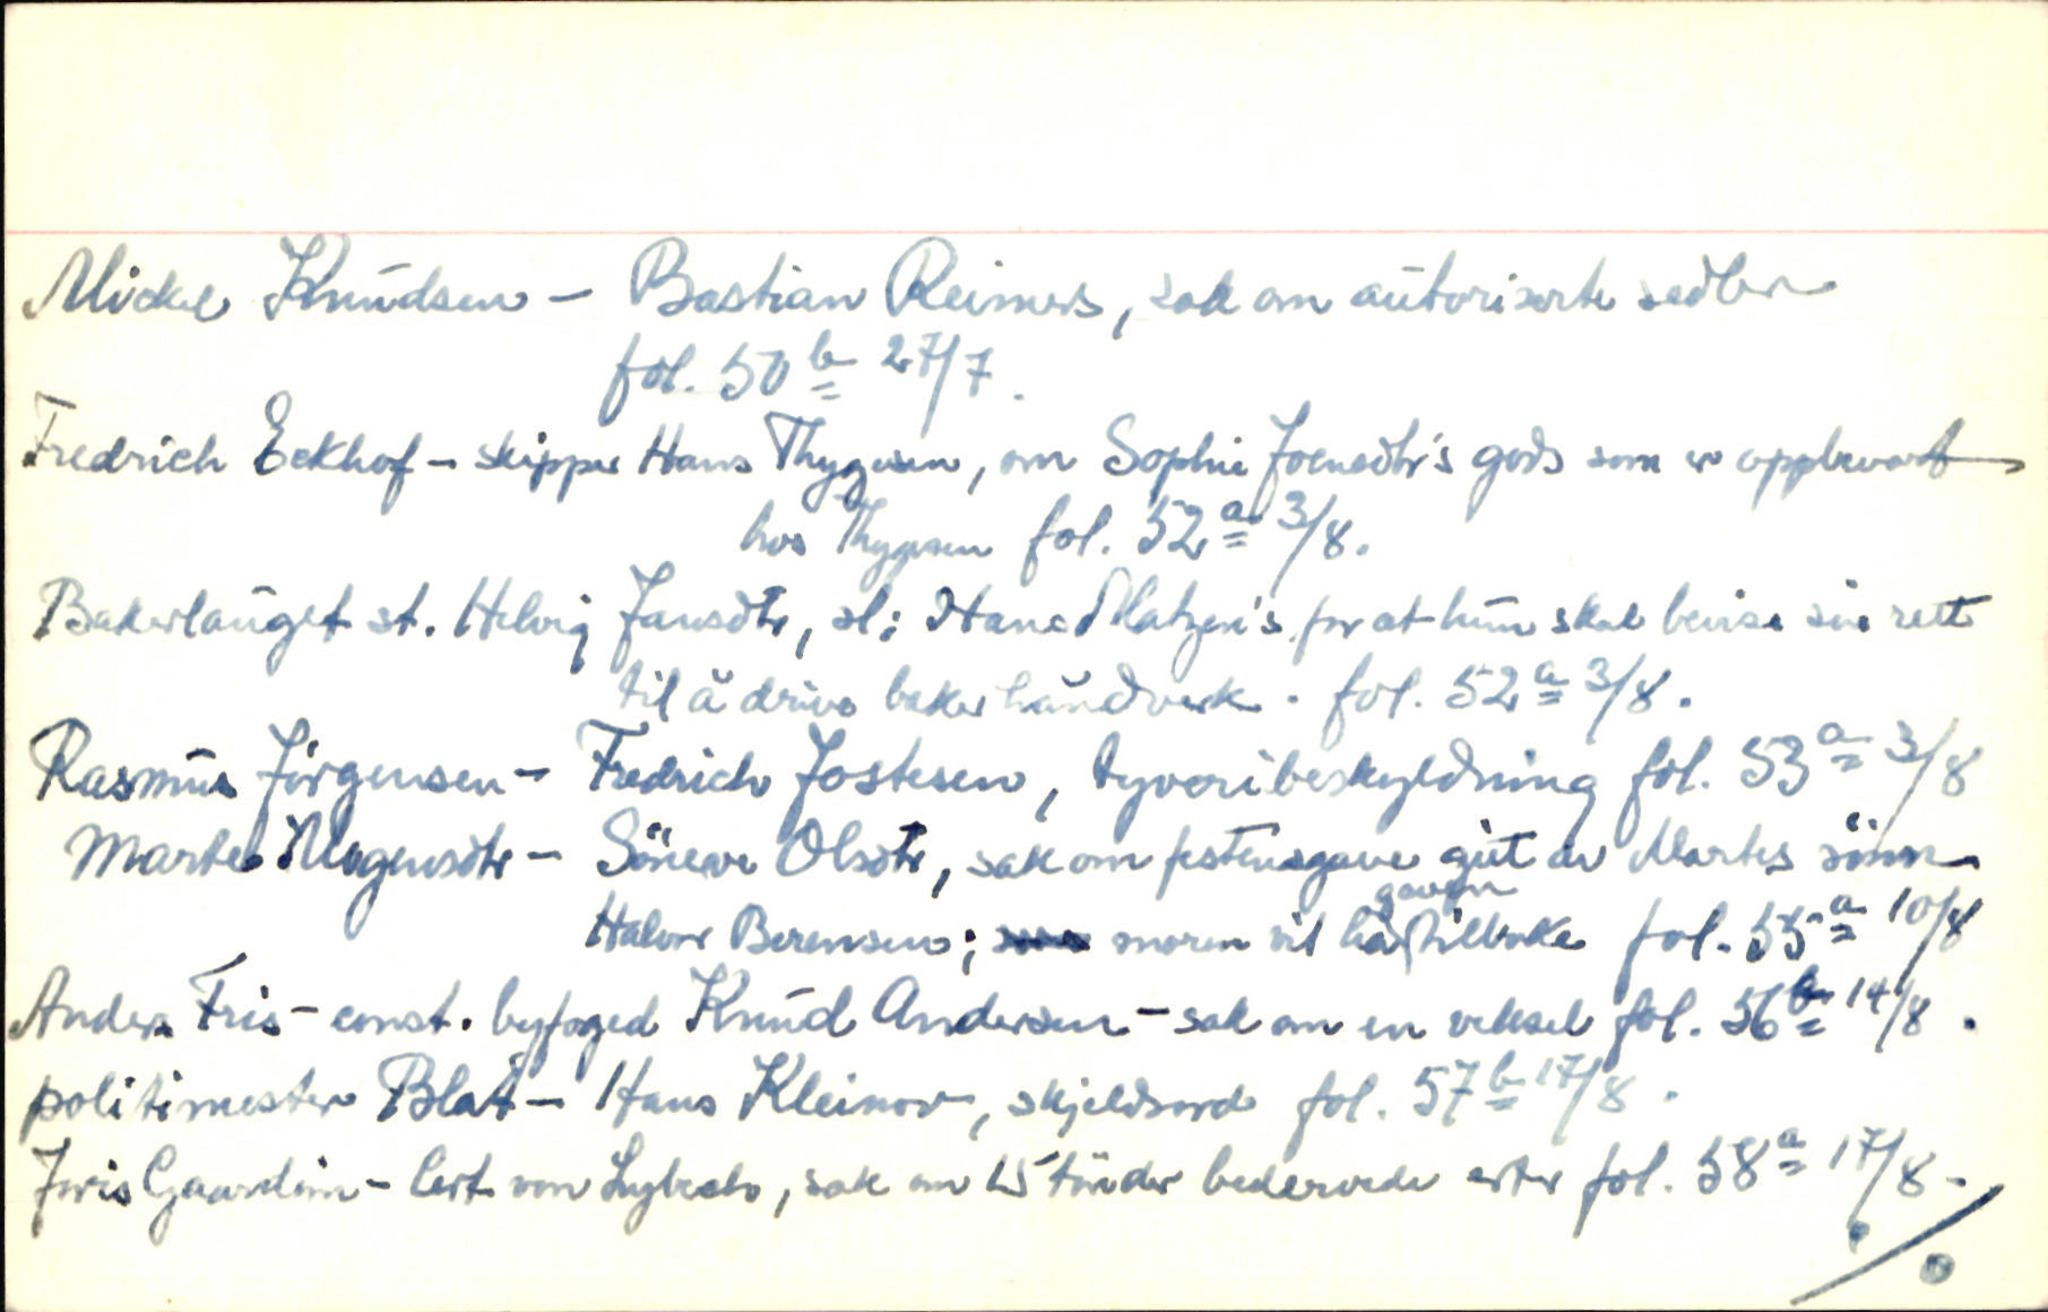 Mickel Knudsen - Bastian Reimers, sak om autoriserte sedler
fol. 50 b 27/7.
Fredrich Eckhof - skipper Hans Thygesen, om Sophie Joensdtr's gods som er oppbevart
hos Thygesen fol. 52 a 3/8.
Bakerlauget st. Helvig Jansdtr, sl: Hans Matzen's for at hun skal bevise sin rett
til å drive bakerhåndverk. fol. 52 a 3/8.
Rasmus Jörgensen - Fredrich Jostesen, tyveribeskyldning fol. 53 a 3/8
Marte Mogensdtr - Sönneve Olsdtr, sak om festensgave gitt av Martes sönn
gaven
Halvor Berensen; moren vil ha tilbake fol. 55 a 10/8
Anders Fris - const. byfoged Knud Andersen - sak om en veksel fol. 56 b 14/8.
politimester Blat - Hans Kleinov, skjeldsord fol. 57 b 17/8.
Joris Gaardin - Cort von Lybech, sak om 15 tönder bedervede erter fol. 58 a 17/8.